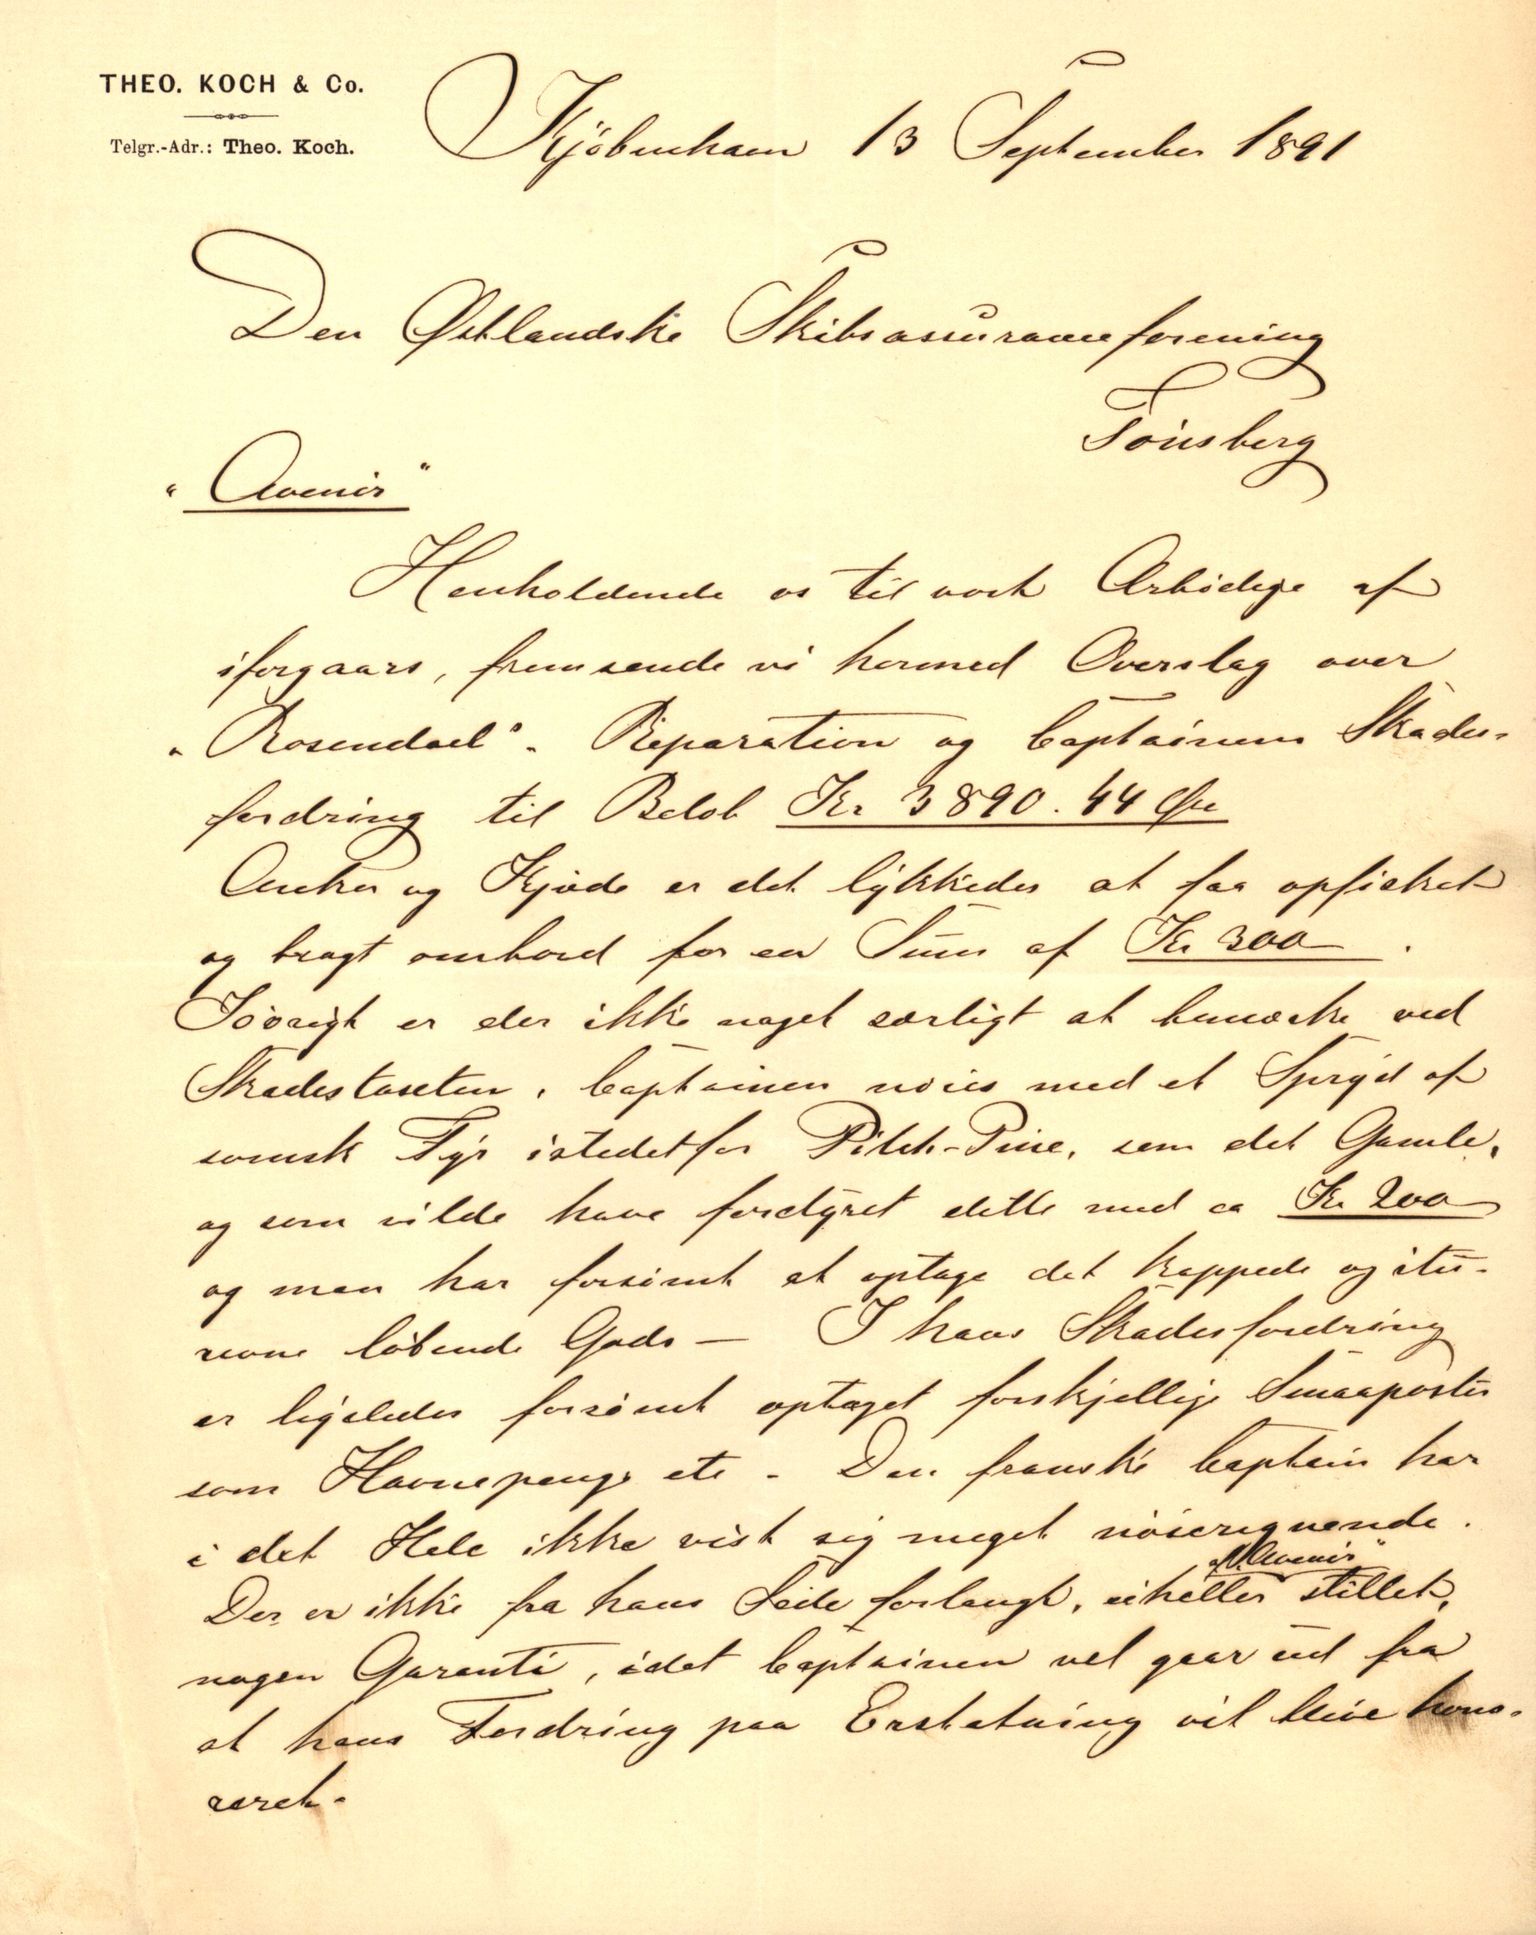 THEO. KOCH & Co.
Telgr.-Adr.: Theo. Koch.
Kjøbenhavn 13 September 1891
Den Østlandske Skibsassuranceforening
Tönsberg
"Avenir"
Henholdende os til vort Arbödige af
iforgaars, fremsende vi hermed Overslag over
"Rosendael"s Reparation og Captainens Skades-
fordring til Belöb Kr 3890.44 Øre
Anker og Kjæde er det lykkedes at faa opfisket
og bragt ombord for en Sum af Kr 300
Iövrigt er der ikke noget særligt at bemærke ved
Skadestaxten, Captainen nöies med et Spryd af
svensk Fyr istedetfor Pitch-Pine, som det Gamle,
og som vilde have fordyret dette med ca Kr 200
og man har forsömt at optage det kappede og itu-
revne löbende Gods — I hans Skadesfordring
er ligeledes forsömt optaget forskjellige Smaaposter
som Havnepenge etc - Den franske Captain har
i det Hele ikke vist sig meget nöieregnende.
af "Avenir"
Der er ikke fra hans Side forlangt, eiheller stillet,
nogen Garanti, idet Captainen vel gaar ud fra
at hans Fordring paa Erstatning vil blive hono-
reret.